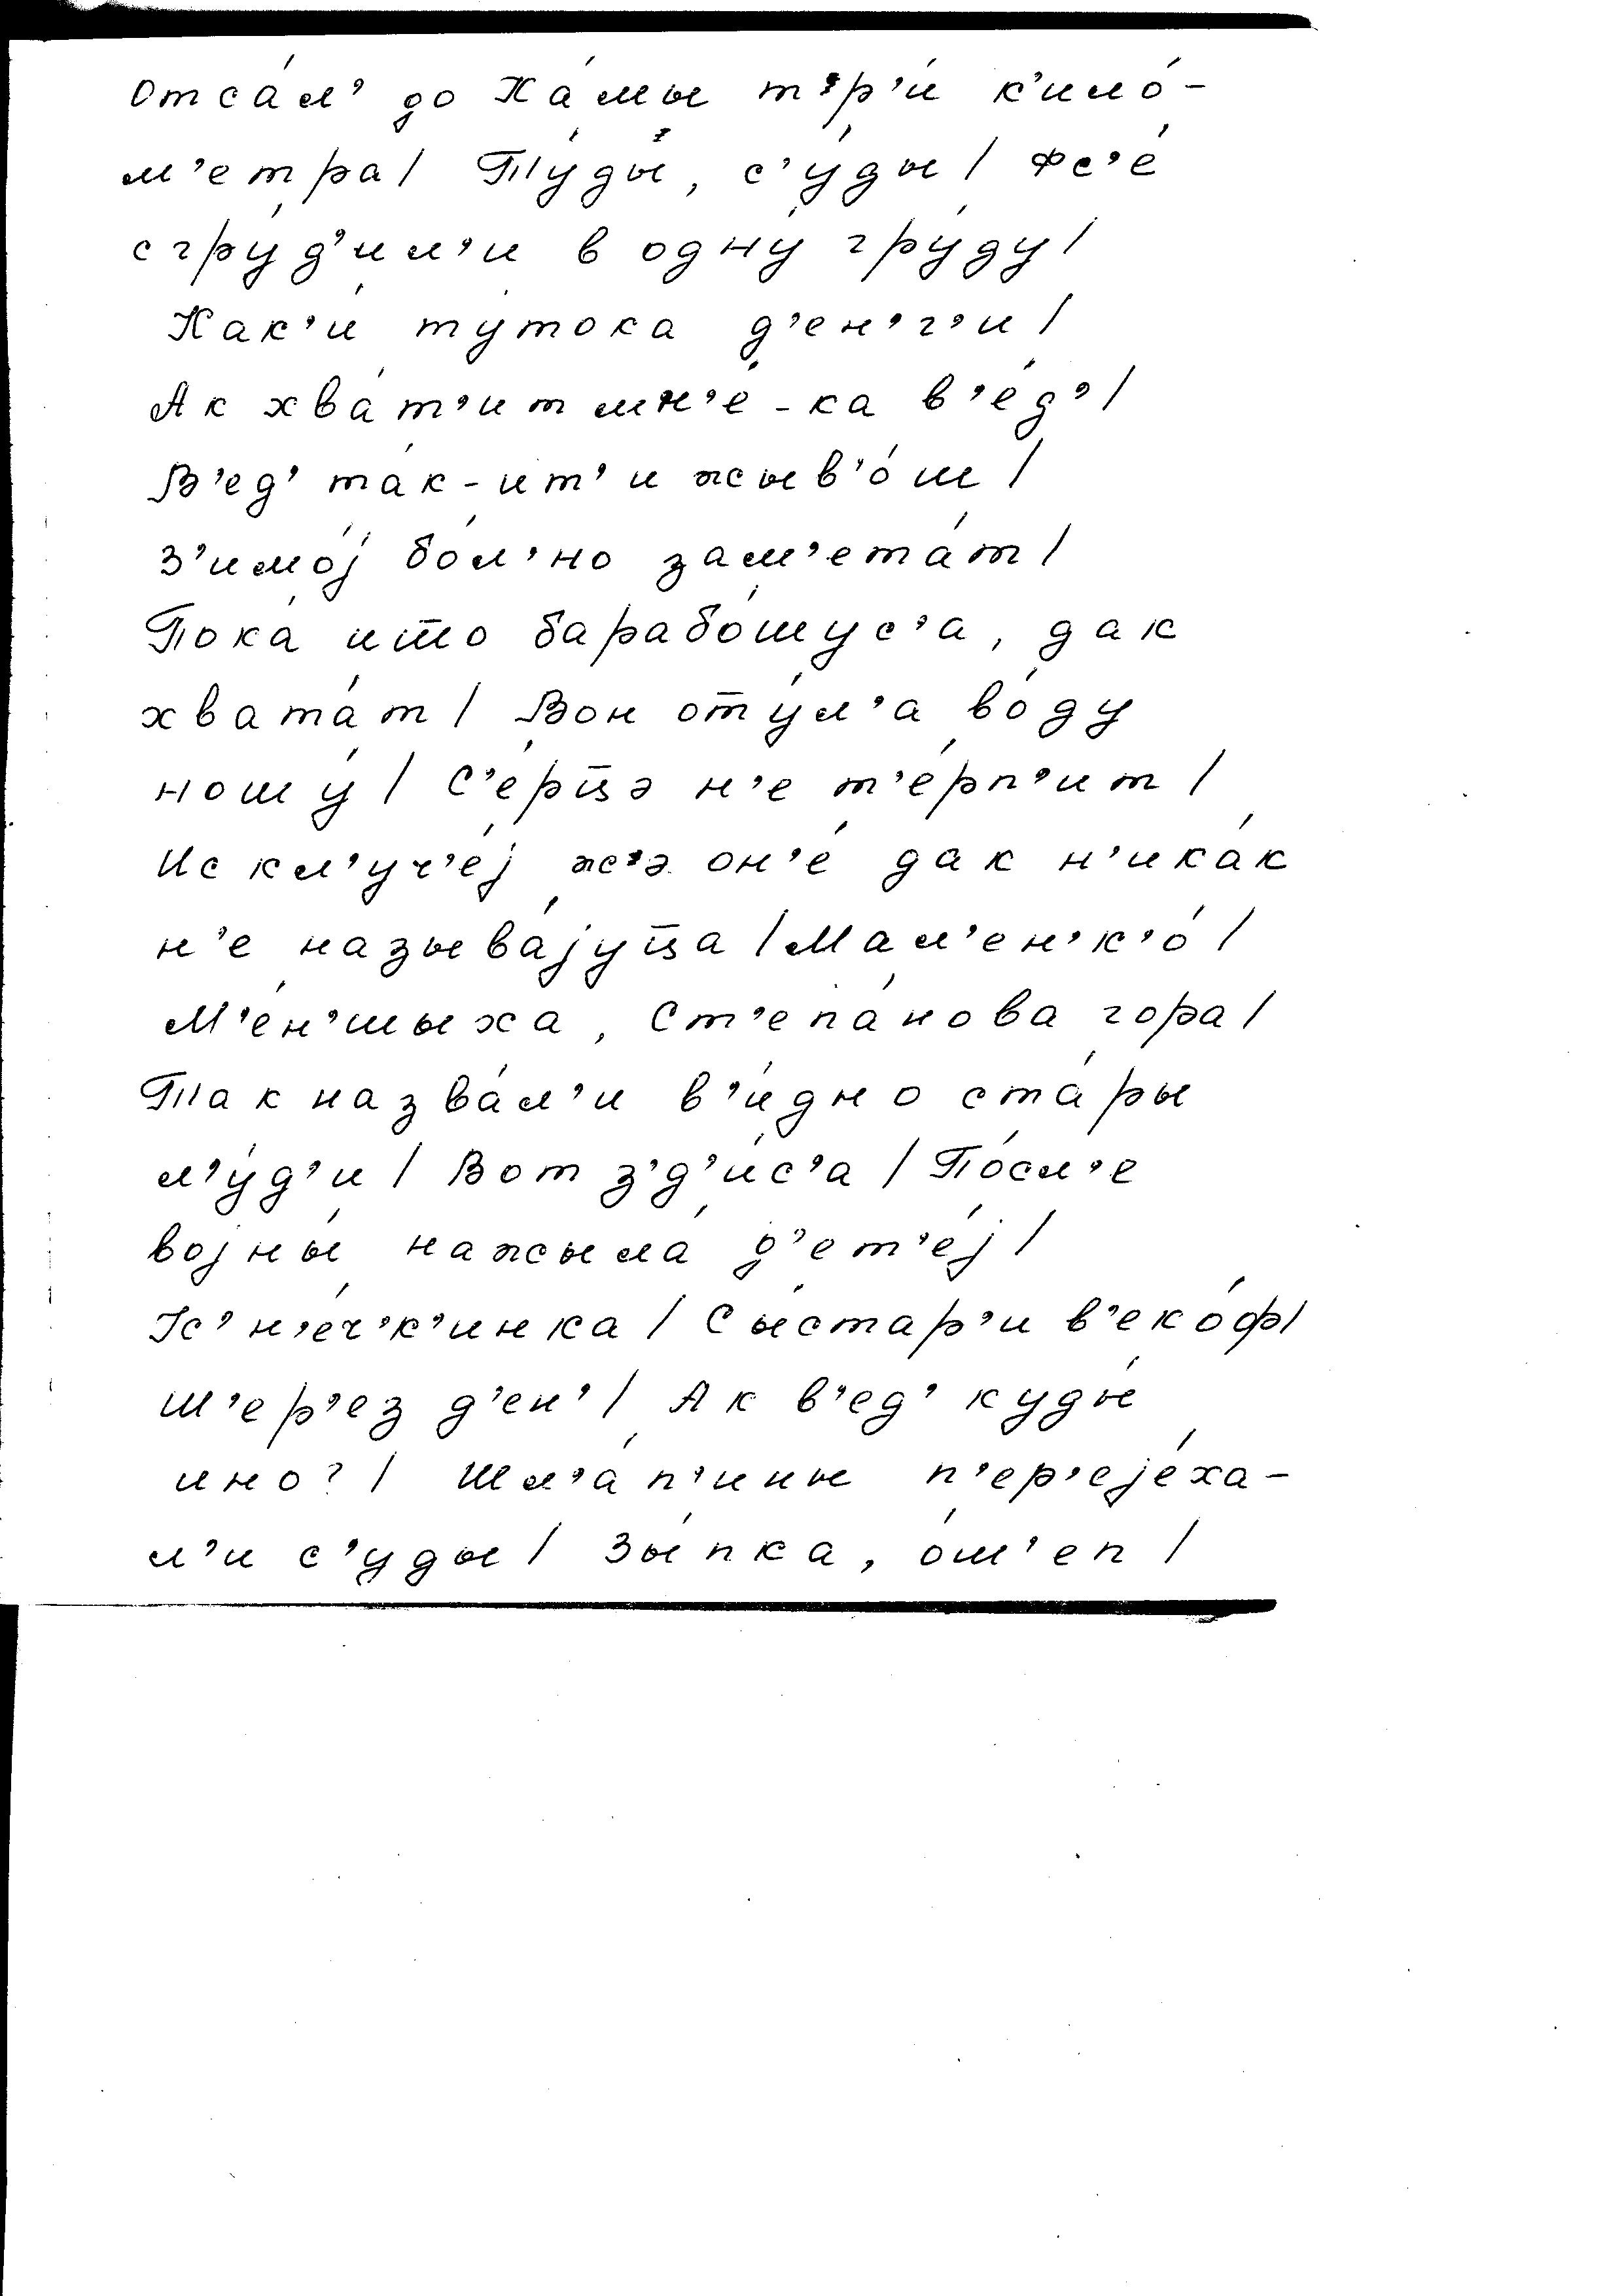 Отса́л’ до Ка́мы т р’и́ к’ило́-
м’етра/ Ту́ды́, с’у́ды/ Фс’е́
сгру́д’ил’и в одну́ гру́ду/
Как’и́ ту́тока д’е́н’г’и/
Ак хва́т’ит мн’е́-ка в’е́д’/
В’ед’ та́к-ит’ и жыв’о́ш/
З’имо́ј бо́л’но зам’ета́т/
Пока́ ишо барабо́шус’а, дак
хвата́т/ Вон оту́л’а во́ду
ношу́/ С’е́рц̄э н’е т’е́рп’ит/
Ис кл’уч’е́ј жэ он’е́ дак н’ика́к
н’е называ́јуц̄а/Мал’ен’к’о́/
М’е́н’шыха, Ст’епа́нова гора/
Так назва́л’и в’и́дно ста́ры
л’у́д’и/ Вот з’д’и́с’а/ По́сл’е
војны́ нажыла́ д’ет’е́ј/
К’н’е́ч’к’инка/ Сы́стар’и в’еко́ф/
Ш’ер’ез д’ен’/ Ак в’ед’ куды́
ино?/ Шл’а́п’ины п’ер’еје́ха-
л’и с’уды/ Зы́пка, о́ш’еп/